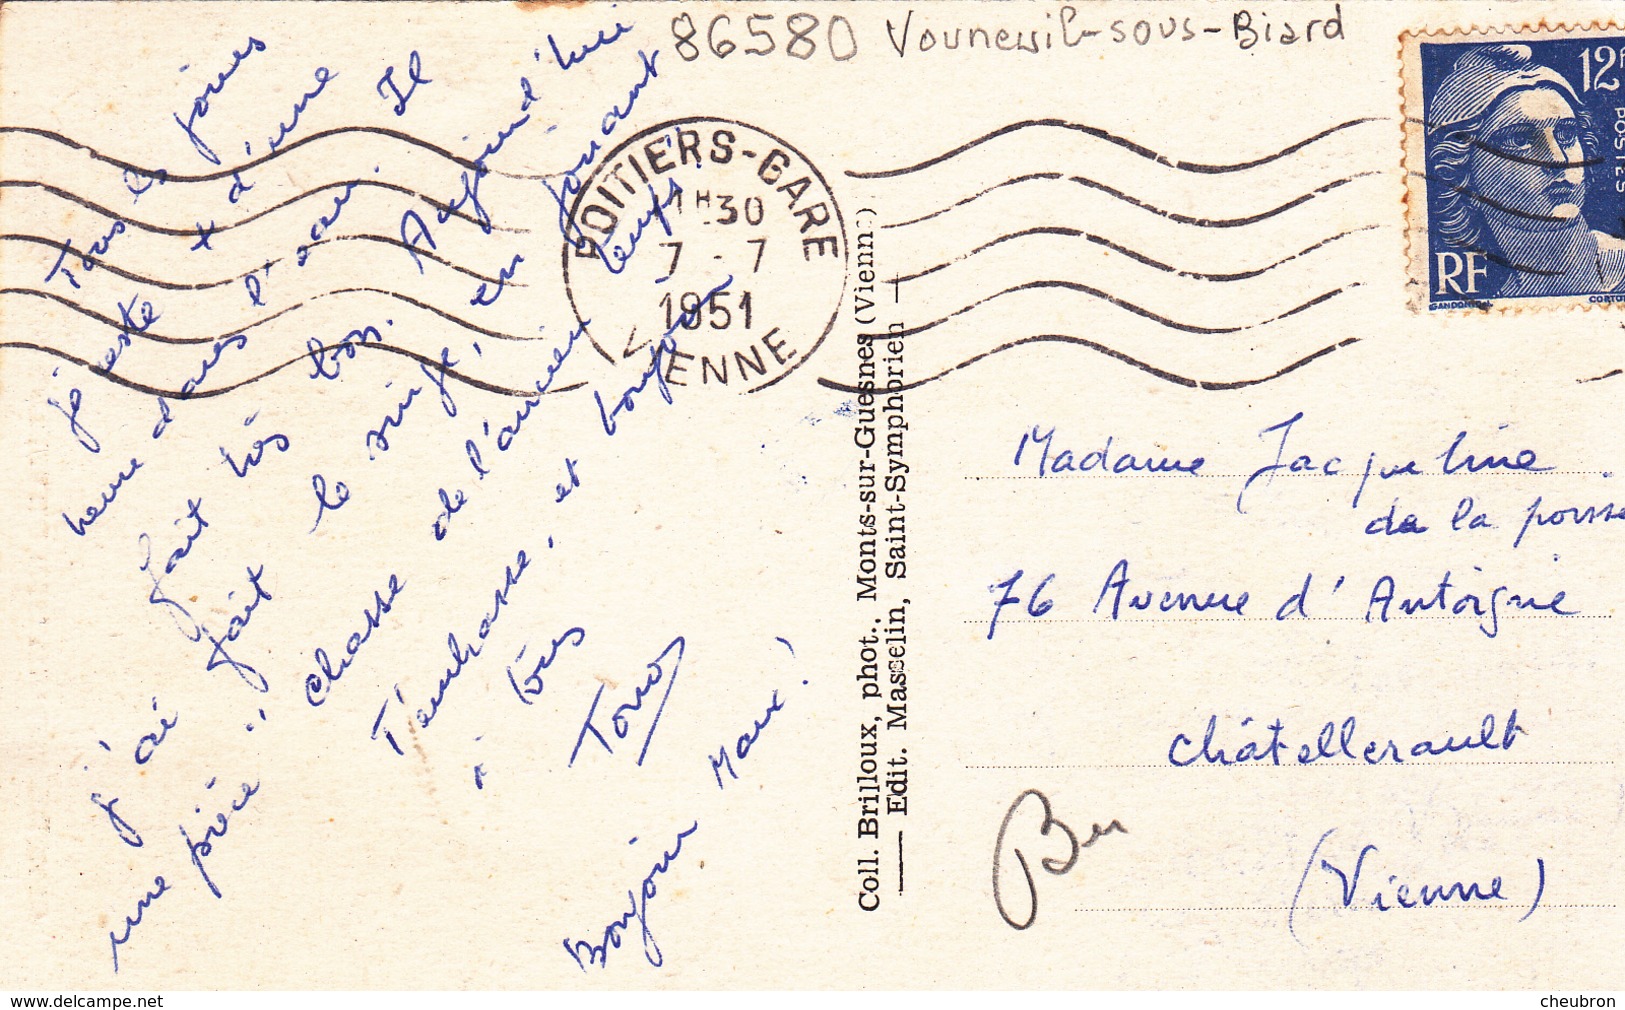 86580 Vouneuil-sous-Biard
12F
POSTES
RF
GANDON
POITIERS-GARE
1H30
7 - 7
1951
VIENNE
Tous les jours
je reste + d'une
heure dans l'eau. Il
fait très bon. Aujourd'hui
j'ai fait le singe, en jouant
une pièce : chasse de l'ancien temps !
T'embrasse, et bonjour
à tous
Bonjour Max !
Coll. Brilloux, phot., Monts-sur-Guesnes (Vienne)
Edit. Masselin, Saint-Symphorien
Madame Jacqueline
de la
76 Avenue d'Antoigné
Châtellerault
(Vienne)
www.delcampe.net
cheubron